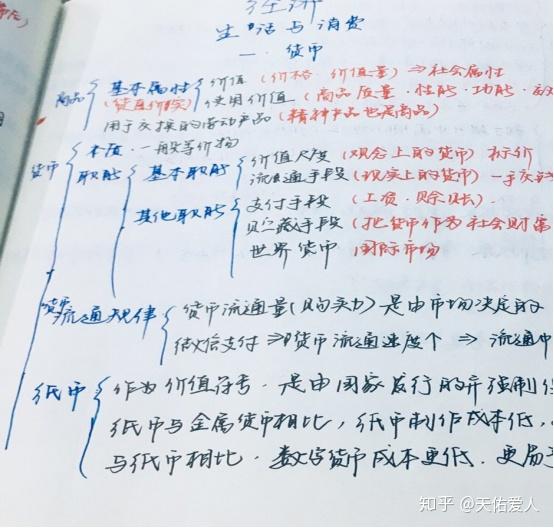 经济
生活与消费
一、货币
商品 基本属性 价值(价格·价值量)⇒社会属性
使用价值(商品质量·性能·功能·
用于交换的劳动产品(精神产品也是商品)
货币 本质·一般等价物
职能 基本职能 价值尺度(观念上的货币)标价
流通手段(现实上的货币)一手交
其他职能 支付手段(工资·赊账)·
贮藏手段(把货币作为社会财富
世界货币 国际市场
货币流通规律 货币流通量(购买力)是由市场决定的
微信支付⇒货币流通速度个⇒流通中
纸币 作为价值符号·是由国家发行的并强制
纸币与金属货币相比,纸币制作成本低,
与纸币相比·数字货币成本更低.更易于
知乎 @天佑爱人